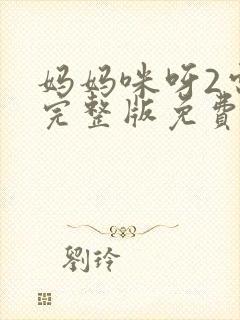 妈妈咪呀2
完整版免費
劉玲